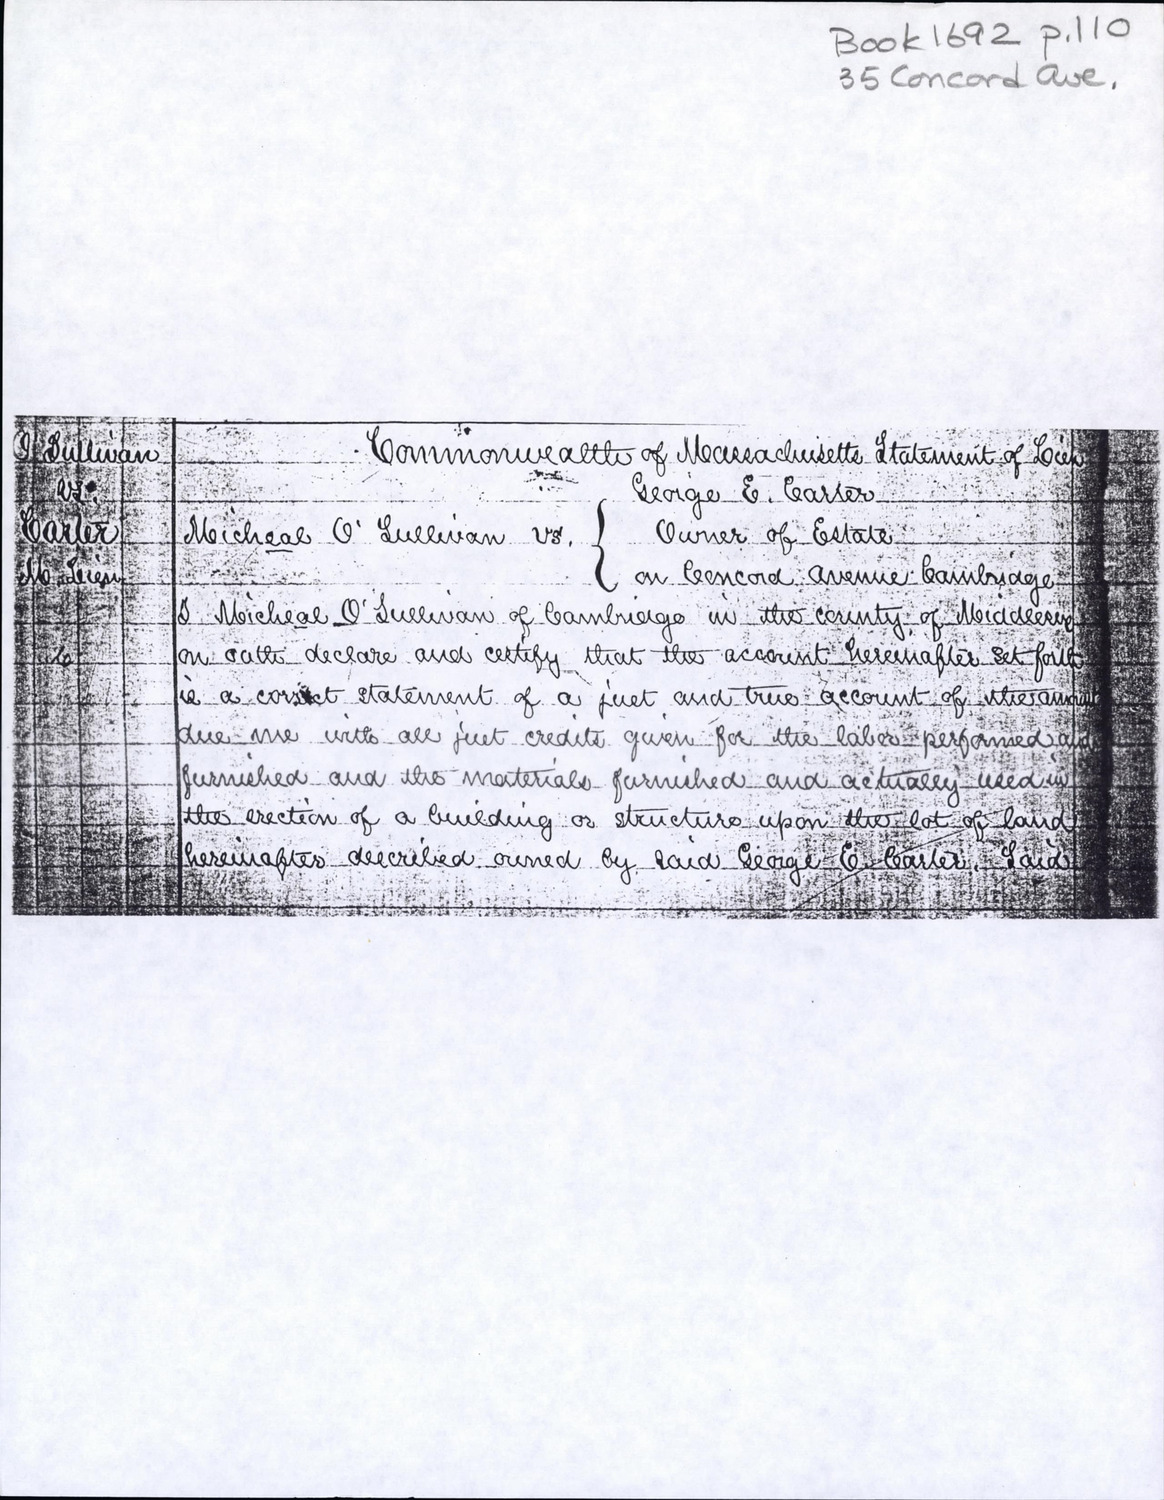 Book 1692 p.110
35 Concord Ave.
O'Sullivan
vs.
Carter
M. Lien
Commonwealth of Massachusetts Statement of Lien
George E. Carter
Micheal O'Sullivan vs. { Owner of Estate
on Concord Avenue Cambridge
I Micheal O'Sullivan of Cambridge in the county of Middlesex
on oath declare and certify that the account hereinafter set forth
is a correct statement of a just and true account of the amount
due me with all just credits given for the labor performed and
furnished and the materials furnished and actually used in
the erection of a building or structure upon the lot of land
hereinafter described owned by said George E. Carter. Said